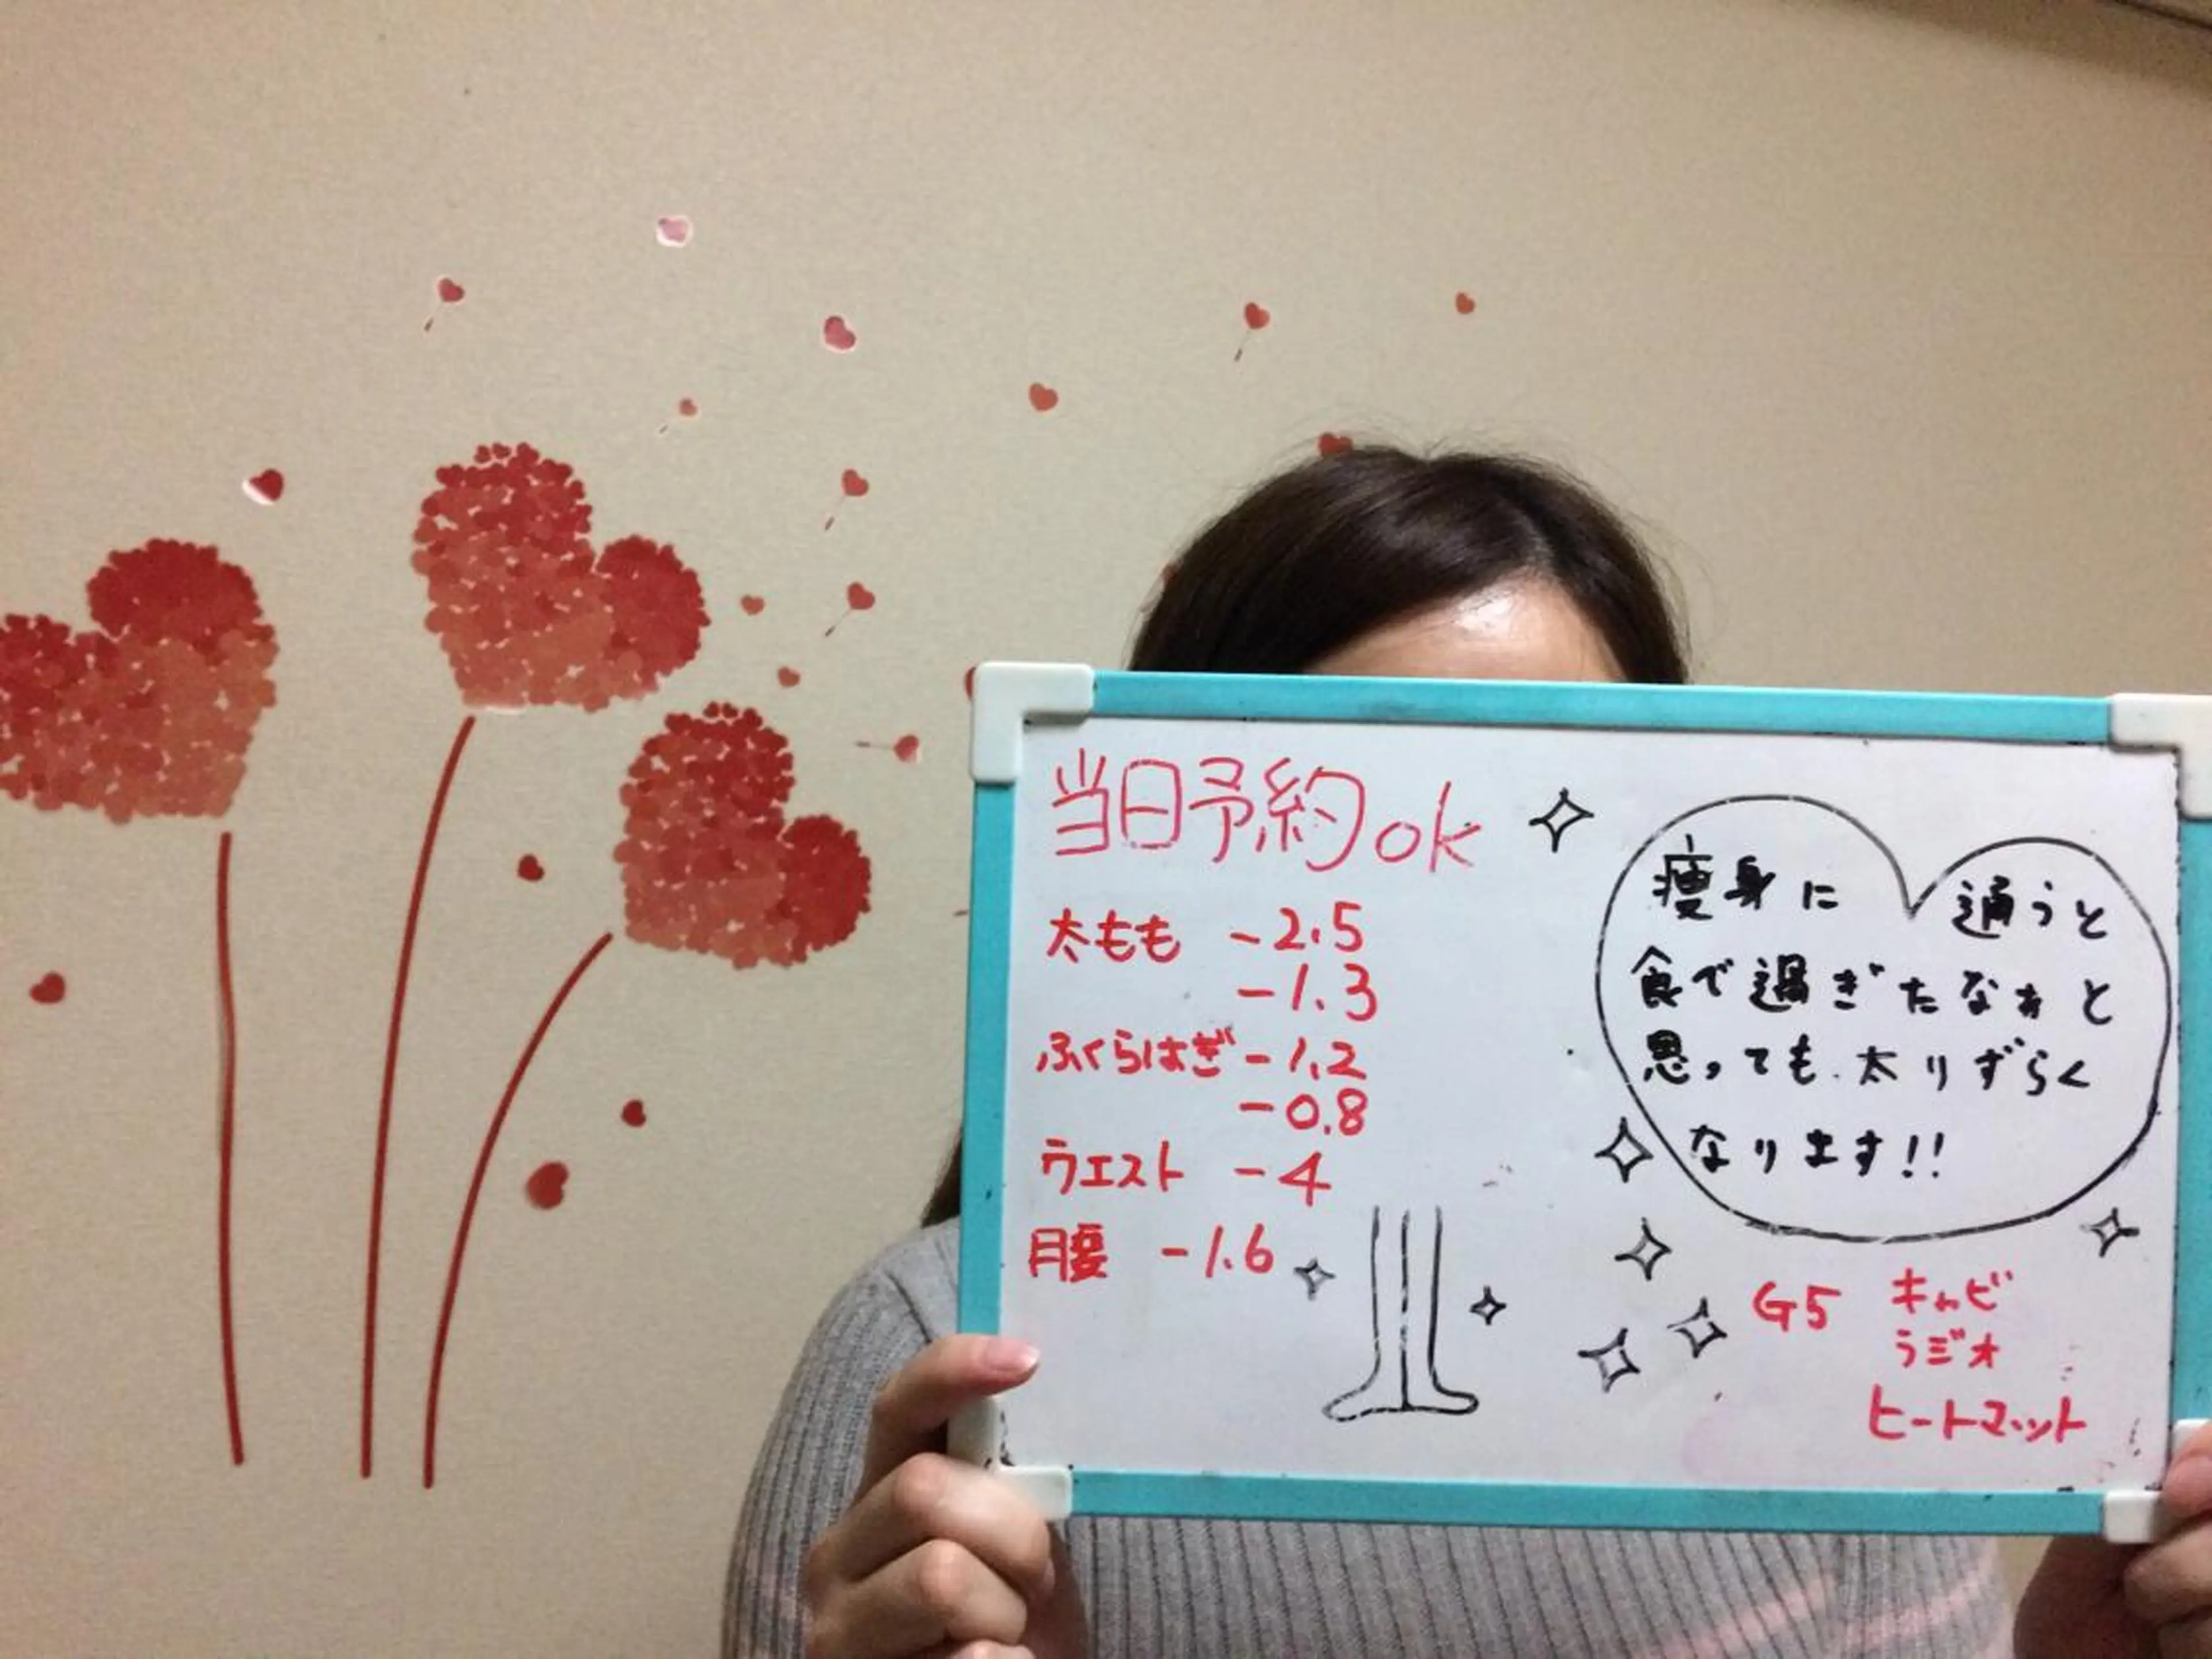 当日予約ok
太もも -2.5
-1.3
ふくらはぎ-1.2
-0.8
ウエスト -4
腰 -1.6
痩身に 通うと
食べ過ぎたなぁと
思っても、太りずらく
なります!!
G5 キャビ
ラジオ
ヒートマット